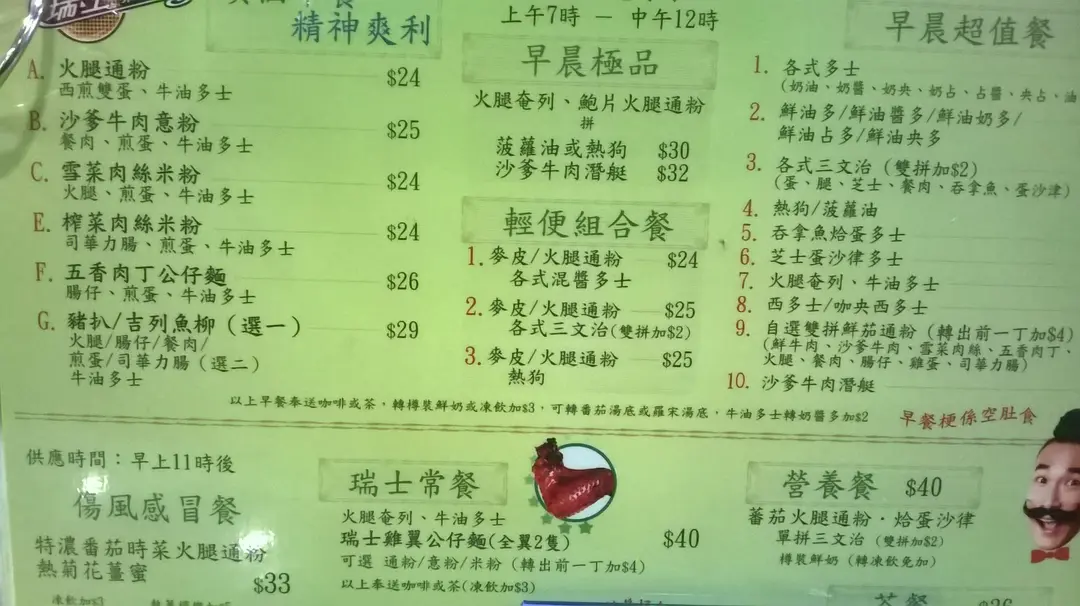 瑞士
精神爽利
A. 火腿通粉 $24
西煎雙蛋、牛油多士
B. 沙爹牛肉意粉 $25
餐肉、煎蛋、牛油多士
C. 雪菜肉絲米粉 $24
火腿、煎蛋、牛油多士
E. 榨菜肉絲米粉 $24
司華力腸、煎蛋、牛油多士
F. 五香肉丁公仔麵 $26
腸仔、煎蛋、牛油多士
G. 豬扒/吉列魚柳（選一） $29
火腿/腸仔/餐肉/
煎蛋/司華力腸（選二）
牛油多士
上午7時 － 中午12時
早晨極品
火腿奄列、鮑片火腿通粉
拼
菠蘿油或熱狗 $30
沙爹牛肉潛艇 $32
輕便組合餐
1. 麥皮/火腿通粉 $24
各式混醬多士
2. 麥皮/火腿通粉 $25
各式三文治(雙拼加$2)
3. 麥皮/火腿通粉 $25
熱狗
早晨超值餐
1. 各式多士
(奶油、奶醬、奶央、奶占、占醬、央占、油
2. 鮮油多/鮮油醬多/鮮油奶多/
鮮油占多/鮮油央多
3. 各式三文治 (雙拼加$2)
(蛋、腿、芝士、餐肉、吞拿魚、蛋沙津)
4. 熱狗/菠蘿油
5. 吞拿魚烚蛋多士
6. 芝士蛋沙律多士
7. 火腿奄列、牛油多士
8. 西多士/咖央西多士
9. 自選雙拼鮮茄通粉 (轉出前一丁加$4)
(鮮牛肉、沙爹牛肉、雪菜肉絲、五香肉丁、
火腿、餐肉、腸仔、雞蛋、司華力腸)
10. 沙爹牛肉潛艇
以上早餐奉送咖啡或茶，轉樽裝鮮奶或凍飲加$3，可轉番茄湯底或羅宋湯底，牛油多士轉奶醬多加$2
早餐梗係空肚食
供應時間：早上11時後
傷風感冒餐
特濃番茄時菜火腿通粉
熱菊花薑蜜 $33
瑞士常餐
火腿奄列、牛油多士
瑞士雞翼公仔麵(全翼2隻) $40
可選 通粉/意粉/米粉 (轉出前一丁加$4)
以上奉送咖啡或茶(凍飲加$3)
營養餐 $40
蕃茄火腿通粉·烚蛋沙律
單拼三文治 (雙拼加$2)
樽裝鮮奶 (轉凍飲免加)